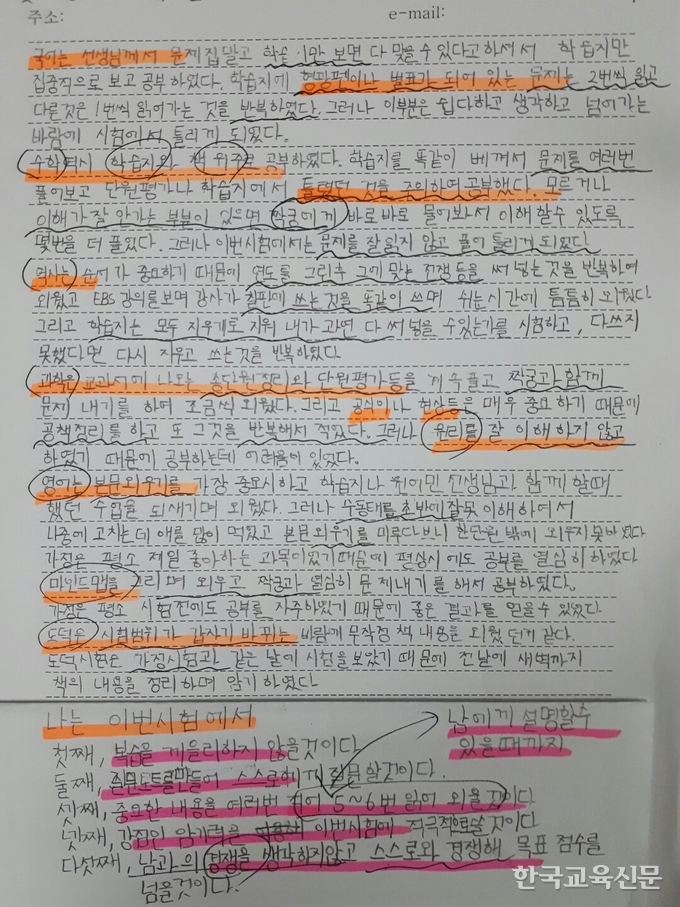 주소: e-mail:
국어는 선생님께서 문제집말고 학습지만 보면 다 맞을 수 있다고 하셔서 학습지만
집중적으로 보고 공부하였다. 학습지에 형광펜이나 별표가 되어 있는 문제는 2번씩 읽고
다른것은 1번씩 읽어가는 것을 반복하였다. 그러나 이부분은 쉽다하고 생각하고 넘어가는
바람에 시험에서 틀리게 되었다.
수학역시 학습지와 책 위주로 공부하였다. 학습지를 똑같이 베껴서 문제를 여러번
풀어보고 단원평가나 학습지에서 틀렸던 것을 주의하여 공부했다. 모르거나
이해가 잘 안가는 부분이 있으면 짝궁에게 바로바로 물어봐서 이해할수 있도록
몇번을 더 풀었다. 그러나 이번시험에서는 문제를 잘 읽지 않고 풀어 틀리게 되었다
역사는 순서가 중요하기 때문에 연도를 그린후 그에 맞는 전쟁등을 써 넣는 것을 반복하여
외웠고 EBS 강의를보며 강사가 칠판에 쓰는것을 똑같이 쓰며 쉬는시간에 틈틈히 외웠다
그리고 학습지는 모두 지우개로 지워 내가 과연 다 써 넣을 수있는가를 시험하고, 다쓰지
못했다면 다시 지우고 쓰는것을 반복하였다.
과학은 교과서에 나오는 중단원정리와 단원평가등을 계속풀고 짝궁과 함께
문제 내기를 하며 조금씩 외웠다. 그리고 공식이나 현상등은 매우 중요하기 때문에
공책정리를 하고 또 그것을 반복해서 적었다. 그러나 원리를 잘 이해하지 않고
하였기 때문에 공부하는데 어려움이 있었다.
영어는 본문외우기를 가장 중요시하고 학습지나 원어민 선생님과 함께 할때
했던 수업을 되새기며 외웠다. 그러나 수동태를 초반에잘못 이해하여서
나중에 고치는데 애를 많이 먹었고 본문외우기를 미루다보니 한단원 밖에 외우지못하였다
가정은 평소 제일 좋아하는 과목이었기때문에 평상시 에도 공부를 열심히 하였다
마인드맵을 그리며 외우고 짝궁과 열심히 문제내기를 해서 공부하였다.
가정은 평소 시험전에도 공부를 자주하였기 때문에 좋은 결과를 얻을수 있었다
도덕은 시험범위가 갑자기 바뀌는 바람에 무작정 책 내용을 외웠던거 같다.
도덕시험은 가정시험과 같은 날에 시험을보았기 때문에 전날에 새벽까지
책의 내용을 정리하며 암기하였다
나는 이번시험에서
남에게 설명할수
있을때까지
첫째, 복습을 게을리하지 않을것이다
둘째, 질문노트를만들어 스스로에게 질문할것이다.
셋째, 중요한 내용을 여러번 적어 5~6번 읽어 외울것이다.
넷째, 강점인 암기력을 이번시험에 적극적으로쓸 것이다.
다섯째, 남과의 경쟁을 생각하지않고 스스로와 경쟁해 목표 점수를
넘을것이다.
한국교육신문